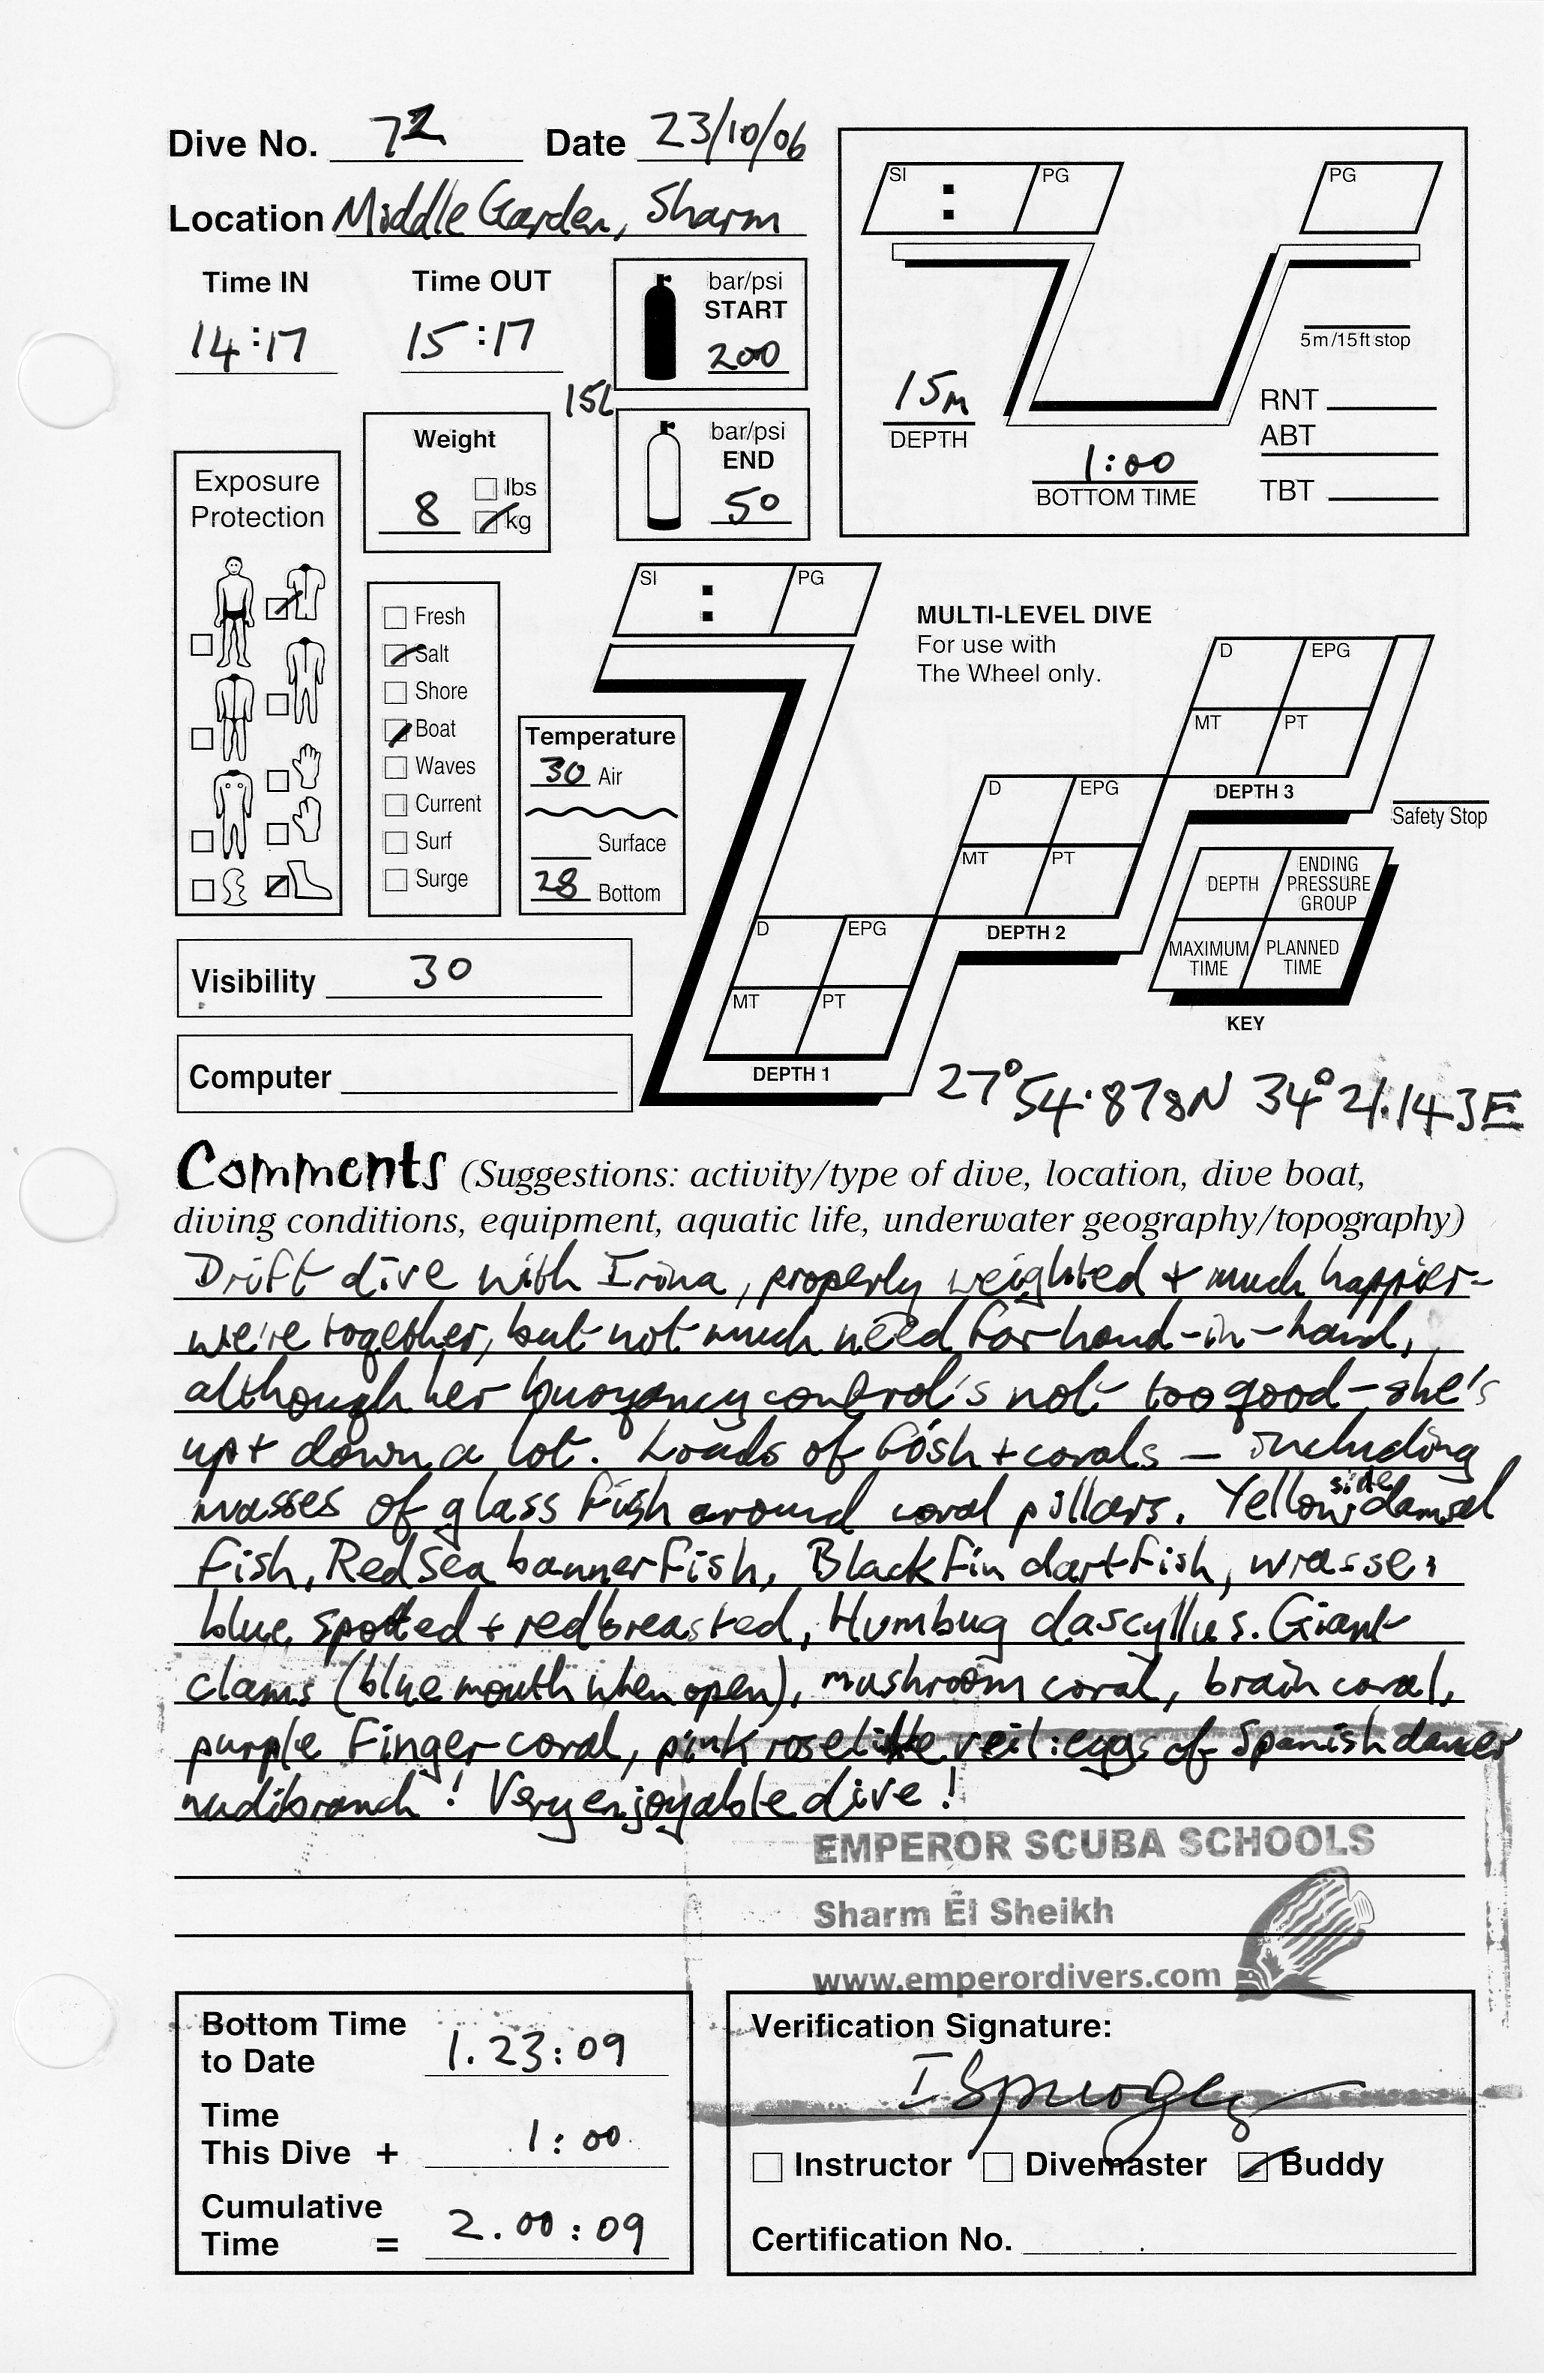 Dive No. 72 Date 23/10/06
Location Middle Garden, Sharm
Time IN Time OUT
14:17 15:17
bar/psi
START
200
15L
bar/psi
END
50
Weight
8
lbs
kg
Exposure
Protection
Fresh
Salt
Shore
Boat
Waves
Current
Surf
Surge
Temperature
30 Air
Surface
28 Bottom
Visibility 30
Computer
SI : PG
PG
5m/15ft stop
15m
DEPTH
1:00
BOTTOM TIME
RNT
ABT
TBT
SI : PG
MULTI-LEVEL DIVE
For use with
The Wheel only.
D EPG
MT PT
DEPTH 3
D EPG
MT PT
DEPTH 2
D EPG
MT PT
DEPTH 1
Safety Stop
DEPTH ENDING PRESSURE GROUP
MAXIMUM TIME PLANNED TIME
KEY
27°54.878N 34°21.143E
Comments (Suggestions: activity/type of dive, location, dive boat,
diving conditions, equipment, aquatic life, underwater geography/topography)
Drift dive with Irina, properly weighted + much happier-
we're together, but not much need for hand-in-hand,
although her buoyancy control's not too good - she's
up + down a lot. Loads of fish + corals - including
masses of glass fish around coral pillars. Yellow side damsel
fish, Red Sea bannerfish, Blackfin dartfish, wrasse:
blue spotted + redbreasted, Humbug dascyllus. Giant
clams (blue mouth when open), mushroom coral, brain coral,
purple finger coral, pink roselike veil: eggs of Spanish dancer
nudibranch! Very enjoyable dive!
EMPEROR SCUBA SCHOOLS
Sharm El Sheikh
www.emperordivers.com
Bottom Time
to Date 1.23:09
Time
This Dive + 1:00
Cumulative
Time = 2.00:09
Verification Signature:
Instructor Divemaster Buddy
Certification No.